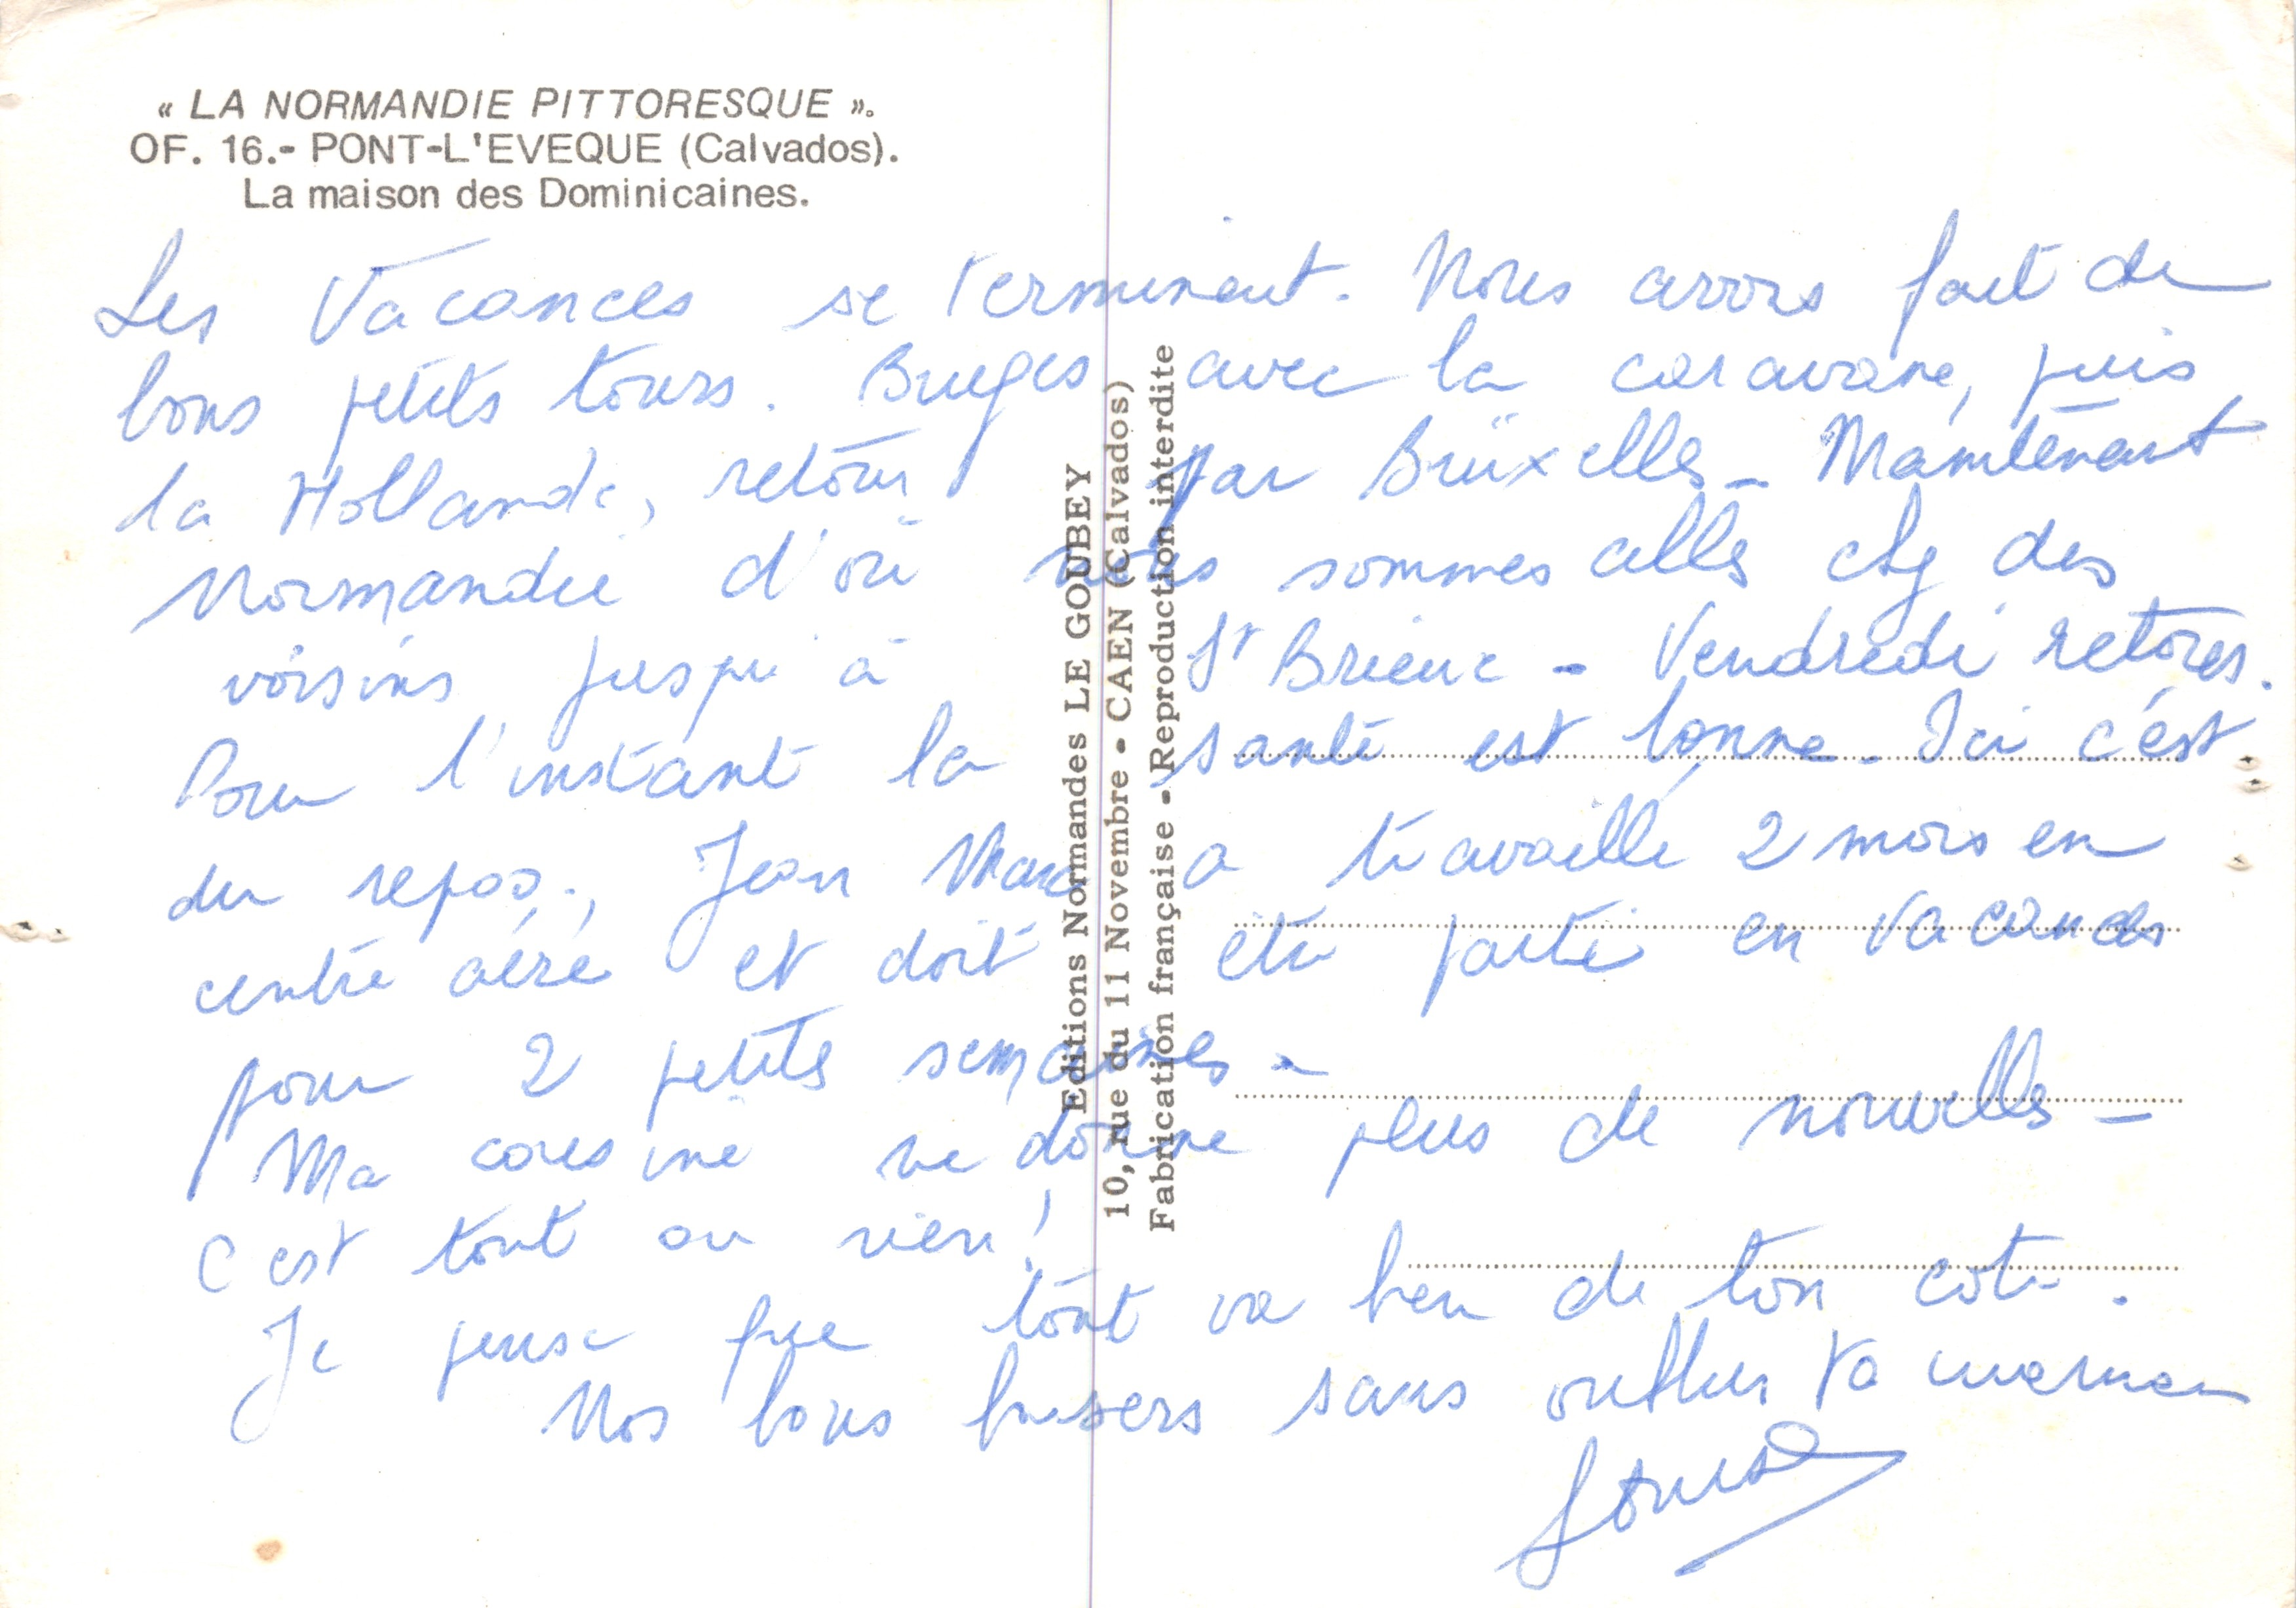 « LA NORMANDIE PITTORESQUE ».
OF. 16.- PONT-L'EVEQUE (Calvados).
La maison des Dominicaines.
Les Vacances se terminent. Nous avons fait de
bons petits tours. Bruges avec la caravane, puis
la Hollande, retour par Bruxelles - Maintenant
Normandie d'où nous sommes allés chez des
voisins jusqu'à St Brieuc - Vendredi retour.
Pour l'instant la santé est bonne - Ici c'est
du repos. Jean Marc a travaillé 2 mois en
centre aéré et doit être parti en vacances
pour 2 petites semaines -
Ma cousine ne donne plus de nouvelles -
C'est tout ou rien !
Je pense que tout va bien de ton coté.
Nos bons baisers sans oublier ta maman
Editions Normandes LE GOUBEY
10, rue du 11 Novembre - CAEN (Calvados)
Fabrication française - Reproduction interdite